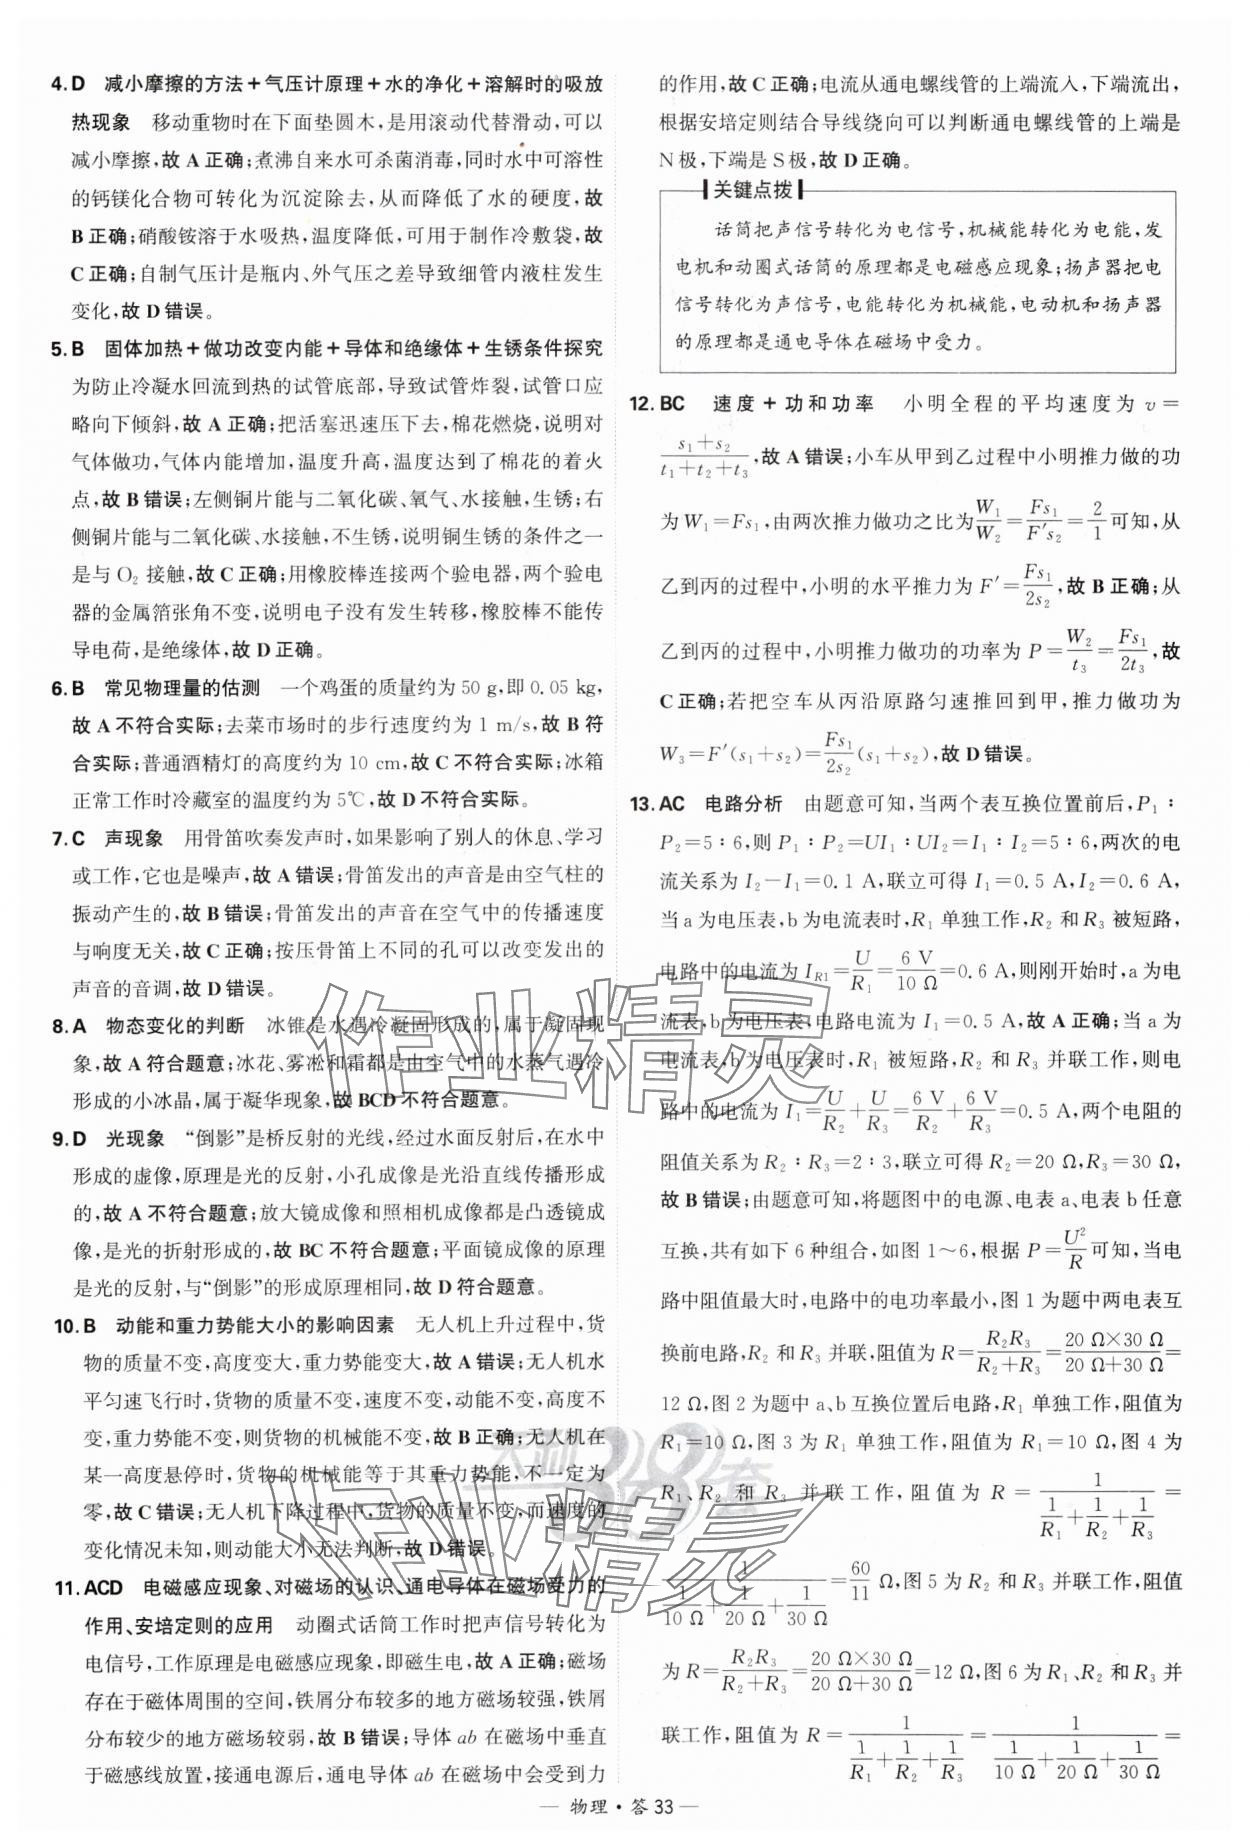 4. D 减小摩擦的方法＋气压计原理＋水的净化＋溶解时的吸放
热现象 移动重物时在下面垫圆木,是用滚动代替滑动,可以
减小摩擦,故 A 正确;煮沸自来水可杀菌消毒,同时水中可溶性
的钙镁化合物可转化为沉淀除去,从而降低了水的硬度,故
B 正确;硝酸铵溶于水吸热,温度降低,可用于制作冷敷袋,故
C 正确;自制气压计是瓶内、外气压之差导致细管内液柱发生
变化,故 D 错误。
5. B 固体加热＋做功改变内能＋导体和绝缘体＋生锈条件探究
为防止冷凝水回流到热的试管底部,导致试管炸裂,试管口应
略向下倾斜,故 A 正确;把活塞迅速压下去,棉花燃烧,说明对
气体做功,气体内能增加,温度升高,温度达到了棉花的着火
点,故 B 错误;左侧铜片能与二氧化碳、氧气、水接触,生锈;右
侧铜片能与二氧化碳、水接触,不生锈,说明铜生锈的条件之一
是与 O₂ 接触,故 C 正确;用橡胶棒连接两个验电器,两个验电
器的金属箔张角不变,说明电子没有发生转移,橡胶棒不能传
导电荷,是绝缘体,故 D 正确。
6. B 常见物理量的估测 一个鸡蛋的质量约为 50 g,即 0.05 kg,
故 A 不符合实际;去菜市场时的步行速度约为 1 m/s,故 B 符
合实际;普通酒精灯的高度约为 10 cm,故 C 不符合实际;冰箱
正常工作时冷藏室的温度约为 5℃,故 D 不符合实际。
7. C 声现象 用骨笛吹奏发声时,如果影响了别人的休息、学习
或工作,它也是噪声,故 A 错误;骨笛发出的声音是由空气柱的
振动产生的,故 B 错误;骨笛发出的声音在空气中的传播速度
与响度无关,故 C 正确;按压骨笛上不同的孔可以改变发出的
声音的音调,故 D 错误。
8. A 物态变化的判断 冰锥是水遇冷凝固形成的,属于凝固现
象,故 A 符合题意;冰花、雾凇和霜都是由空气中的水蒸气遇冷
形成的小冰晶,属于凝华现象,故 BCD 不符合题意。
9. D 光现象 “倒影”是桥反射的光线,经过水面反射后,在水中
形成的虚像,原理是光的反射,小孔成像是光沿直线传播形成
的,故 A 不符合题意;放大镜成像和照相机成像都是凸透镜成
像,是光的折射形成的,故 BC 不符合题意;平面镜成像的原理
是光的反射,与“倒影”的形成原理相同,故 D 符合题意。
10. B 动能和重力势能大小的影响因素 无人机上升过程中,货
物的质量不变,高度变大,重力势能变大,故 A 错误;无人机水
平匀速飞行时,货物的质量不变,速度不变,动能不变,高度不
变,重力势能不变,则货物的机械能不变,故 B 正确;无人机在
某一高度悬停时,货物的机械能等于其重力势能,不一定为
零,故 C 错误;无人机下降过程中,货物的质量不变,而速度的
变化情况未知,则动能大小无法判断,故 D 错误。
11. ACD 电磁感应现象、对磁场的认识、通电导体在磁场受力的
作用、安培定则的应用 动圈式话筒工作时把声信号转化为
电信号,工作原理是电磁感应现象,即磁生电,故 A 正确;磁场
存在于磁体周围的空间,铁屑分布较多的地方磁场较强,铁屑
分布较少的地方磁场较弱,故 B 错误;导体 ab 在磁场中垂直
于磁感线放置,接通电源后,通电导体 ab 在磁场中会受到力
的作用,故 C 正确;电流从通电螺线管的上端流入,下端流出,
根据安培定则结合导线绕向可以判断通电螺线管的上端是
N 极,下端是 S 极,故 D 正确。
关键点拨
话筒把声信号转化为电信号,机械能转化为电能,发
电机和动圈式话筒的原理都是电磁感应现象;扬声器把电
信号转化为声信号,电能转化为机械能,电动机和扬声器
的原理都是通电导体在磁场中受力。
12. BC 速度＋功和功率 小明全程的平均速度为 v＝
(s₁＋s₂)/(t₁＋t₂＋t₃),故 A 错误;小车从甲到乙过程中小明推力做的功
为 W₁＝Fs₁,由两次推力做功之比为 W₁/W₂＝Fs₁/F′s₂＝2/1 可知,从
乙到丙的过程中,小明的水平推力为 F′＝Fs₁/2s₂,故 B 正确;从
乙到丙的过程中,小明推力做功的功率为 P＝W₂/t₃＝Fs₁/2t₃,故
C 正确;若把空车从丙沿原路匀速推回到甲,推力做功为
W₃＝F′(s₁＋s₂)＝Fs₁/2s₂(s₁＋s₂),故 D 错误。
13. AC 电路分析 由题意可知,当两个表互换位置前后,P₁∶
P₂＝5∶6,则 P₁∶P₂＝UI₁∶UI₂＝I₁∶I₂＝5∶6,两次的电
流关系为 I₂－I₁＝0.1 A,联立可得 I₁＝0.5 A,I₂＝0.6 A,
当 a 为电压表,b 为电流表时,R₁ 单独工作,R₂ 和 R₃ 被短路,
电路中的电流为 I_R1＝U/R₁＝6 V/10 Ω＝0.6 A,则刚开始时,a 为电
流表,b 为电压表,电路电流为 I₁＝0.5 A,故 A 正确;当 a 为
电流表,b 为电压表时,R₁ 被短路,R₂ 和 R₃ 并联工作,则电
路中的电流为 I₁＝U/R₂＋U/R₃＝6 V/R₂＋6 V/R₃＝0.5 A,两个电阻的
阻值关系为 R₂∶R₃＝2∶3,联立可得 R₂＝20 Ω,R₃＝30 Ω,
故 B 错误;由题意可知,将题图中的电源、电表 a、电表 b 任意
互换,共有如下 6 种组合,如图 1～6,根据 P＝U²/R 可知,当电
路中阻值最大时,电路中的电功率最小,图 1 为题中两电表互
换前电路,R₂ 和 R₃ 并联,阻值为 R＝R₂R₃/(R₂＋R₃)＝(20 Ω×30 Ω)/(20 Ω＋30 Ω)＝
12 Ω,图 2 为题中 a、b 互换位置后电路,R₁ 单独工作,阻值为
R₁＝10 Ω,图 3 为 R₁ 单独工作,阻值为 R₁＝10 Ω,图 4 为
R₁、R₂ 和 R₃ 并联工作,阻值为 R＝1/(1/R₁＋1/R₂＋1/R₃)＝
1/(1/10 Ω＋1/20 Ω＋1/30 Ω)＝60/11 Ω,图 5 为 R₂ 和 R₃ 并联工作,阻值
为 R＝R₂R₃/(R₂＋R₃)＝(20 Ω×30 Ω)/(20 Ω＋30 Ω)＝12 Ω,图 6 为 R₁、R₂ 和 R₃ 并
联工作,阻值为 R＝1/(1/R₁＋1/R₂＋1/R₃)＝1/(1/10 Ω＋1/20 Ω＋1/30 Ω)＝
作业精灵
天利38套
作业精灵
— 物理·答 33 —